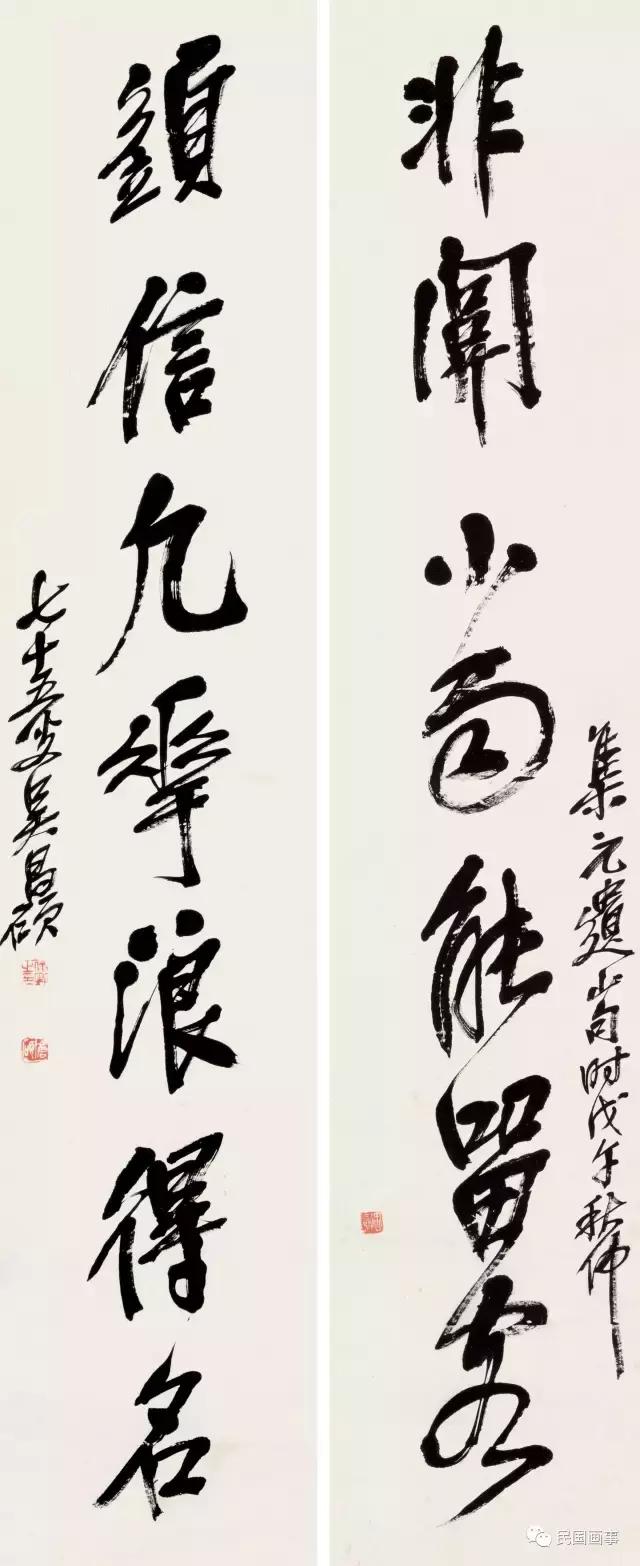 非關小雨能留客
集元遺山句时戊午秋仲
信凡華浪得名
七十五叟吴昌碩
民国画事